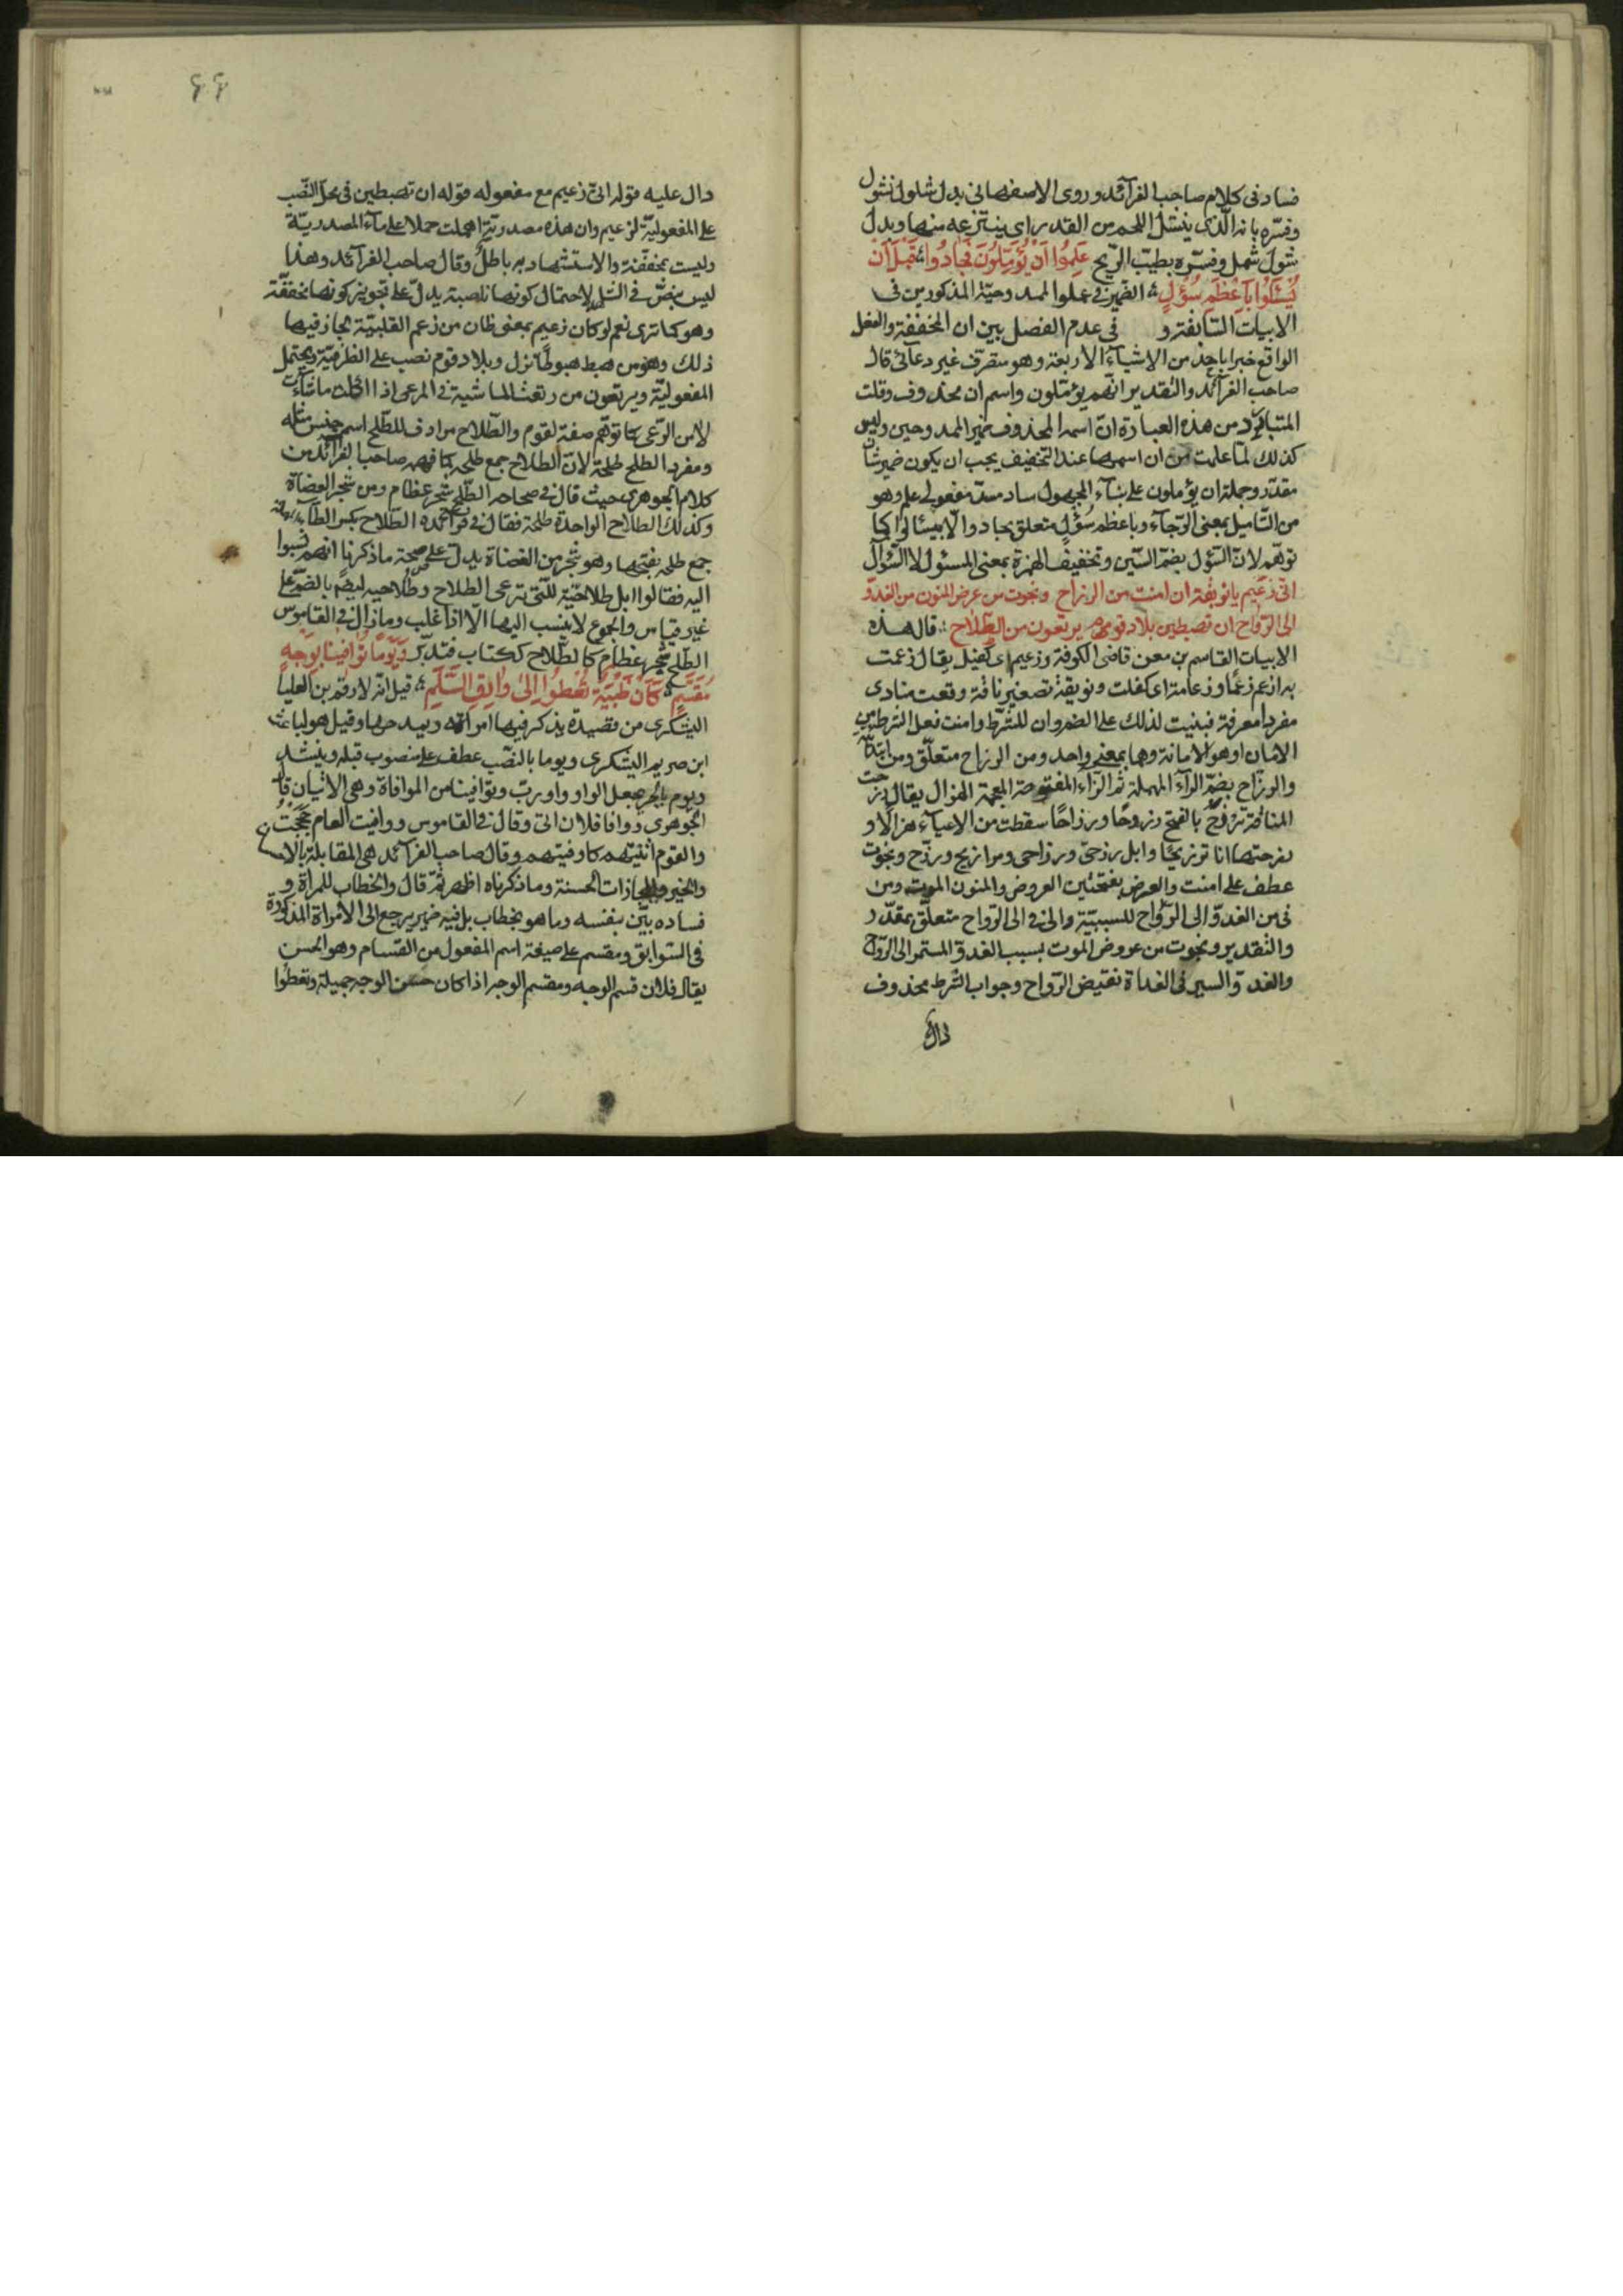 فساد فى كلام صاحب الفرآئد وروى الاصفهانى بدل شلول نشول
وفسّره بانه الّذى ينتشل اللحم من القدر اى ينتزعه منها وبدل
شول شمل وفسّره بطيب الرّيح عَلِمُوا اَنْ يُؤَمَّلُونَ فَجَادُوا قَبْلَ اَنْ
يُسْئَلُوا بِاَعْظَمِ سُؤْلٍ الضمير فى علموا للممدوحين المذكورين فى
الابيات السّابقة و فى عدم الفصل بين ان المخففة والفعل
الواقع خبرا باحد من الاشيآء الاربعة وهو متصرّف غير دعآئى قال
صاحب الفرآئد والتقدير انّهم يؤمّلون واسم ان محذوف وقلت
المتبادر من هذه العبارة انّ اسمها المحذوف ضمير الممدوحين وليس
كذلك لما علمت من ان اسمها عند التخفيف يجب ان يكون ضمير شأن
مقدّر وجملة ان يؤملون على بنآء المجهول ساد مسدّ مفعولى علم وهو
من التّأميل بمعنى الرّجآء وباعظم سُؤْلٍ متعلق بجادوا لا بيسئلوا كما
توهّم لانّ السّؤل بضمّ السّين وتخفيف الهمزة بمعنى المسئول لا السّؤال
انّى زعيم يا نويقة ان امنت من الرزاح ونجوت من عرض المنون من الغدوّ
الى الرّواح ان تهبطين بلاد قوم يرتعون من الطّلاح قال هذه
الابيات القاسم بن معن قاضى الكوفة وزعيم اى كفيل يقال زعمت
به ازعم زعما وزعامة اى كفلت ونويقة تصغير ناقة وقعت منادى
مفردا معرفة فبنيت لذلك على الضم وان للشّرط وامنت فعل الشرط من
الامان او هو الامانة وهما بمعنى واحد ومن الرزاح متعلّق ومن ابتدآئيّة
والرزاح بضمّ الرآء المهملة ثم الزّاء المفتوحة المعجمة الهزال يقال رزحت
الناقة ترزح بالفتح رزوحًا ورزاحًا سقطت من الاعيآء هزالا و
رزحتها انا ترزيحًا وابل رزحى ورزاحى ومرازيح ورزّح ونجوت
عطف على امنت والعرض بفتحتين العروض والمنون الموت ومن
فى من الغدوّ الى الرّواح للسببيّة والى فى الى الرّواح متعلّق بمقدّر
والتقدير ونجوت من عروض الموت بسبب الغدوّ المستمر الى الرّواح
والغدوّ السير فى الغداة نقيض الرّواح وجواب الشرط محذوف
دال
٤٤
دال عليه قوله انّى زعيم مع مفعوله قوله ان تهبطين فى محلّ النّصب
على المفعوليّة لزعيم وان هذه مصدريّة اهملت حملا على مآء المصدريّة
وليست بمخفّفة والاستشهاد به باطل وقال صاحب الفرآئد وهذا
ليس بنصّ فى الشل لاحتمال كونها ناصبة يدلّ على تجويز كونها مخففّة
وهو كما ترى نعم لو كان زعيم بمعنى ظان من زعم القلبيّة لجاز فيها
ذلك وهو من هبط هبوطًا نزل وبلاد قوم نصب على الظرفيّة ويحتمل
المفعوليّة ويرتعون من رتعت الماشية فى المرعى اذا اكلت ما شاءت
لا من الرّعى كما توهّم صفة لقوم والطّلاح مرادف للطّلح اسم جنس مثله
ومفرد الطلح طلحة لانّ الطلاح جمع طلحة كما فهمه صاحب الفرآئد من
كلام الجوهرى حيث قال فى صحاحه الطّلح شجر عظام ومن شجر العضاة
وكذلك الطلاح الواحدة طلحة فقال فى فرآئده الطّلاح بكسر الطّآء المهملة
جمع طلحة بفتحها وهو شجر من العضاة يدلّ على صحة ما ذكرنا انهم نسبوا
اليه فقالوا ابل طلاحيّة للّتى ترعى الطلاح وطُلاحية ايضًا بالضمّ على
غير قياس والجموع لا ينسب اليها الّا اذا غلب وما زال فى القاموس
الطّلح شجر عظام كالطّلاح ككتاب فتدبّر وَيَوْمًا تُوَافِينَا بِوَجْهٍ
مُقَسَّمٍ كَاَنْ ظَبْيَةً تَعْطُوا اِلَى وَارِقِ السَّلَمِ قيل انّه لارقم بن العليا
اليشكرى من قصيدة يذكر فيها امراته ويمدحها وقيل هو لباعث
ابن صريم اليشكرى ويوما بالنّصب عطف على منصوب قبله وينشد
ويوم بالجرّ بجعل الواو واو ربّ وتوافينا من الموافاة وهى الاتيان قال
الجوهرى ووافا فلان اتى وقال فى القاموس ووافيت العام حججتُ
والقوم اتيتهم كاوفيتهم وقال صاحب الفرآئد هى المقابلة بالاحسان
والخير والمجازات الحسنة وما ذكرناه اظهر ثمّ قال والخطاب للمراة و
فساده بيّن بنفسه وما هو بخطاب بل فيه ضمير يرجع الى الامراة المذكورة
فى السّوابق ومقسم على صيغة اسم المفعول من القسام وهو الحسن
يقال فلان قسم الوجه ومقسم الوجه اذا كان حسن الوجه جميله وتعطوا